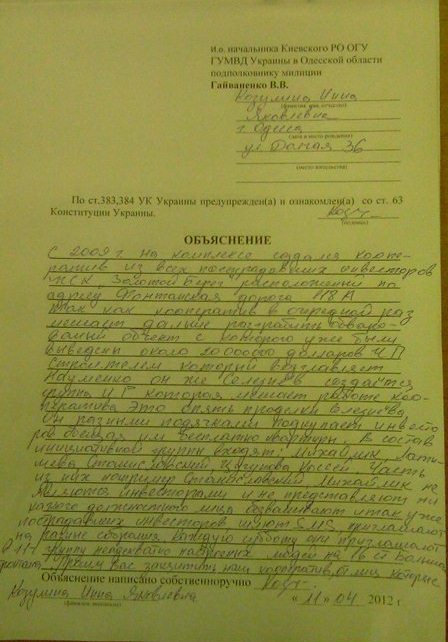 И.о. начальника Киевского РО ОГУ
ГУМВД Украины в Одесской области
подполковнику милиции
Гайваненко В.В.
Козулина Инна
(фамилия, имя, отчество)
Яковлевна
г. Одесса
(дата и место рождения)
ул Домая 36
(место жительства)
По ст.383,384 УК Украины предупрежден(а) и ознакомлен(а) со ст. 63
Конституции Украины.
(подпись)
ОБЪЯСНЕНИЕ
С 2009 г на комплексе создался коопе-
ратив из всех пострадавших инвесторов
ЖСК Золотой Берег расположений по
адресу Фонтанская дорога 118А
Так как кооператив в очередной раз
мешает дальше разграблять
объект с которого уже были
выведены около 20000000 долларов ЧП
Строителем который возглавляет
Науменко он же Селезнёв создаётся
группа ИГ которая мешает работе коо-
ператива Это опять проделки Селезнёва
Он разными подачками подкупает инвесто
ров обещая им бесплатно квартиры. В состав
инициативной группы входят: Михайлик,
Станиславский, Часть
из них например Станиславский, Михайлик не
являются инвесторами и не представляют ни
какого должностного лица и так уже
пострадавших инвесторов шлют SMS, приглашают
на собрания каждую субботу они приглашают
группу людей на
Прошу Вас защитить наш кооператив,
Объяснение написано собственноручно
Козулина Инна Яковлевна
« 11 » 04 2012 г
(фамилия, инициалы)